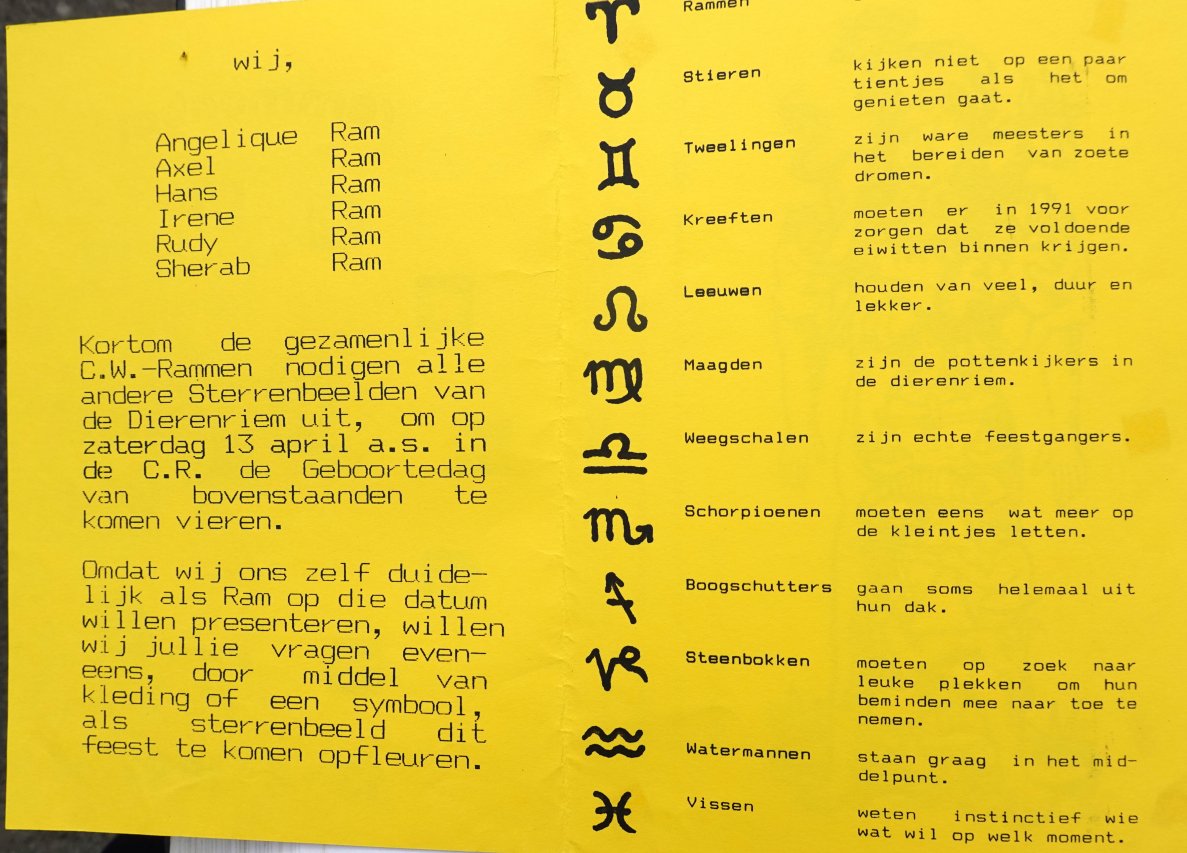 wij,
Angelique Ram
Axel Ram
Hans Ram
Irene Ram
Rudy Ram
Sherab Ram
Kortom de gezamenlijke
C.W.-Rammen nodigen alle
andere Sterrenbeelden van
de Dierenriem uit, om op
zaterdag 13 april a.s. in
de C.R. de Geboortedag
van bovenstaanden te
komen vieren.
Omdat wij ons zelf duide-
lijk als Ram op die datum
willen presenteren, willen
wij jullie vragen even-
eens, door middel van
kleding of een symbool,
als sterrenbeeld dit
feest te komen opfleuren.
♈ Rammen
♉ Stieren kijken niet op een paar
tientjes als het om
genieten gaat.
♊ Tweelingen zijn ware meesters in
het bereiden van zoete
dromen.
♋ Kreeften moeten er in 1991 voor
zorgen dat ze voldoende
eiwitten binnen krijgen.
♌ Leeuwen houden van veel, duur en
lekker.
♍ Maagden zijn de pottenkijkers in
de dierenriem.
♎ Weegschalen zijn echte feestgangers.
♏ Schorpioenen moeten eens wat meer op
de kleintjes letten.
♐ Boogschutters gaan soms helemaal uit
hun dak.
♑ Steenbokken moeten op zoek naar
leuke plekken om hun
beminden mee naar toe te
nemen.
♒ Watermannen staan graag in het mid-
delpunt.
♓ Vissen weten instinctief wie
wat wil op welk moment.